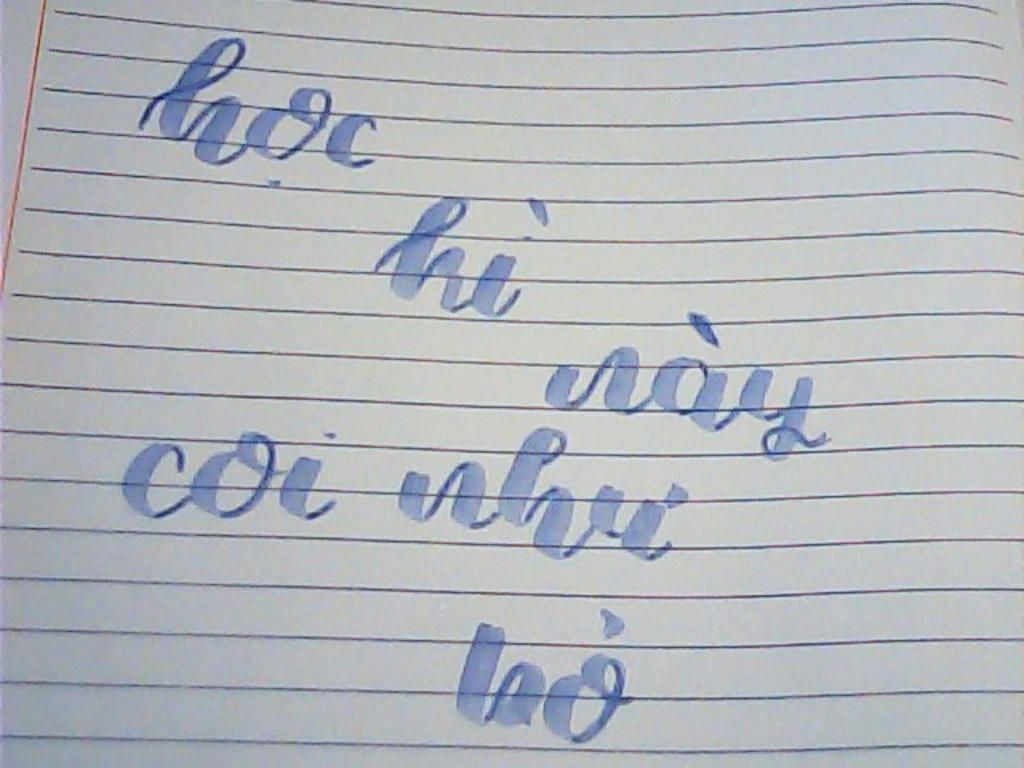 học
kì
này
coi như
bỏ